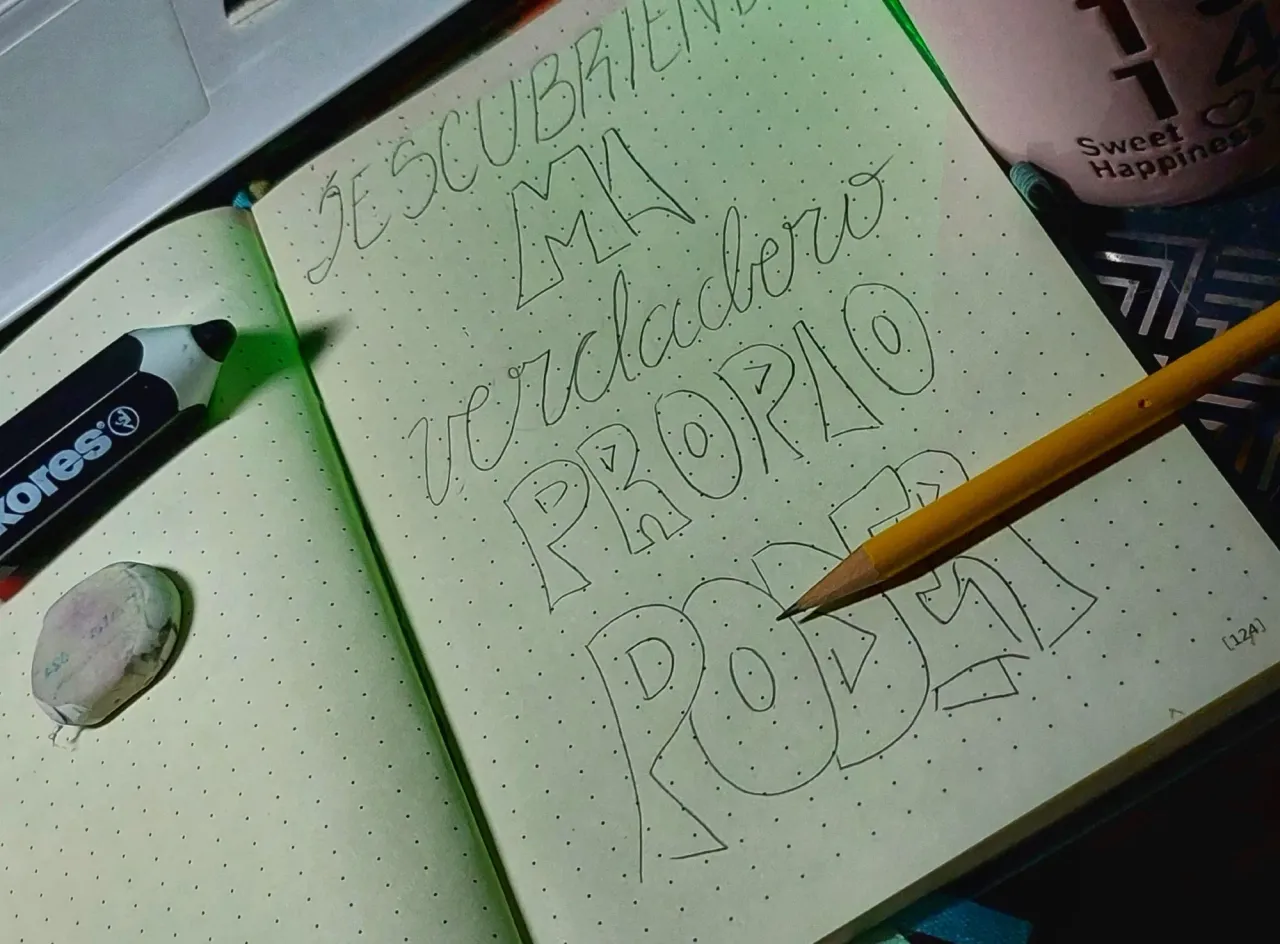 DESCUBRIEND
MI
verdadero
PROPIO
PODER
[12A]
kores
Sweet
Happiness